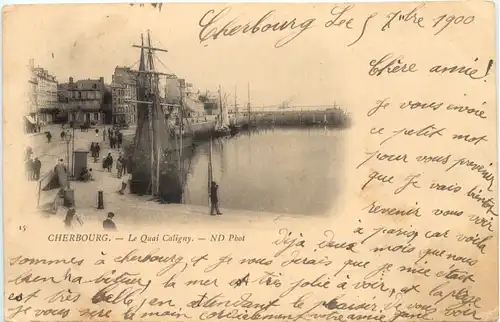 Cherbourg Le 5 7bre 1900
Chère amie!
Je vous envoie
ce petit mot
pour vous prevenir
que je vais bientôt
revenir vous voir
à paris, car voila
15
CHERBOURG. - Le Quai Caligny. - ND Phot
Déjà deux mois que nous
sommes à cherbourg, et je vous dirais que je m'ice
bien habituer, la mer est très jolie à voir, et la plage
est très belle, en attendant le plaisir de vous voir
Je vous serre la main cordialement votre amie